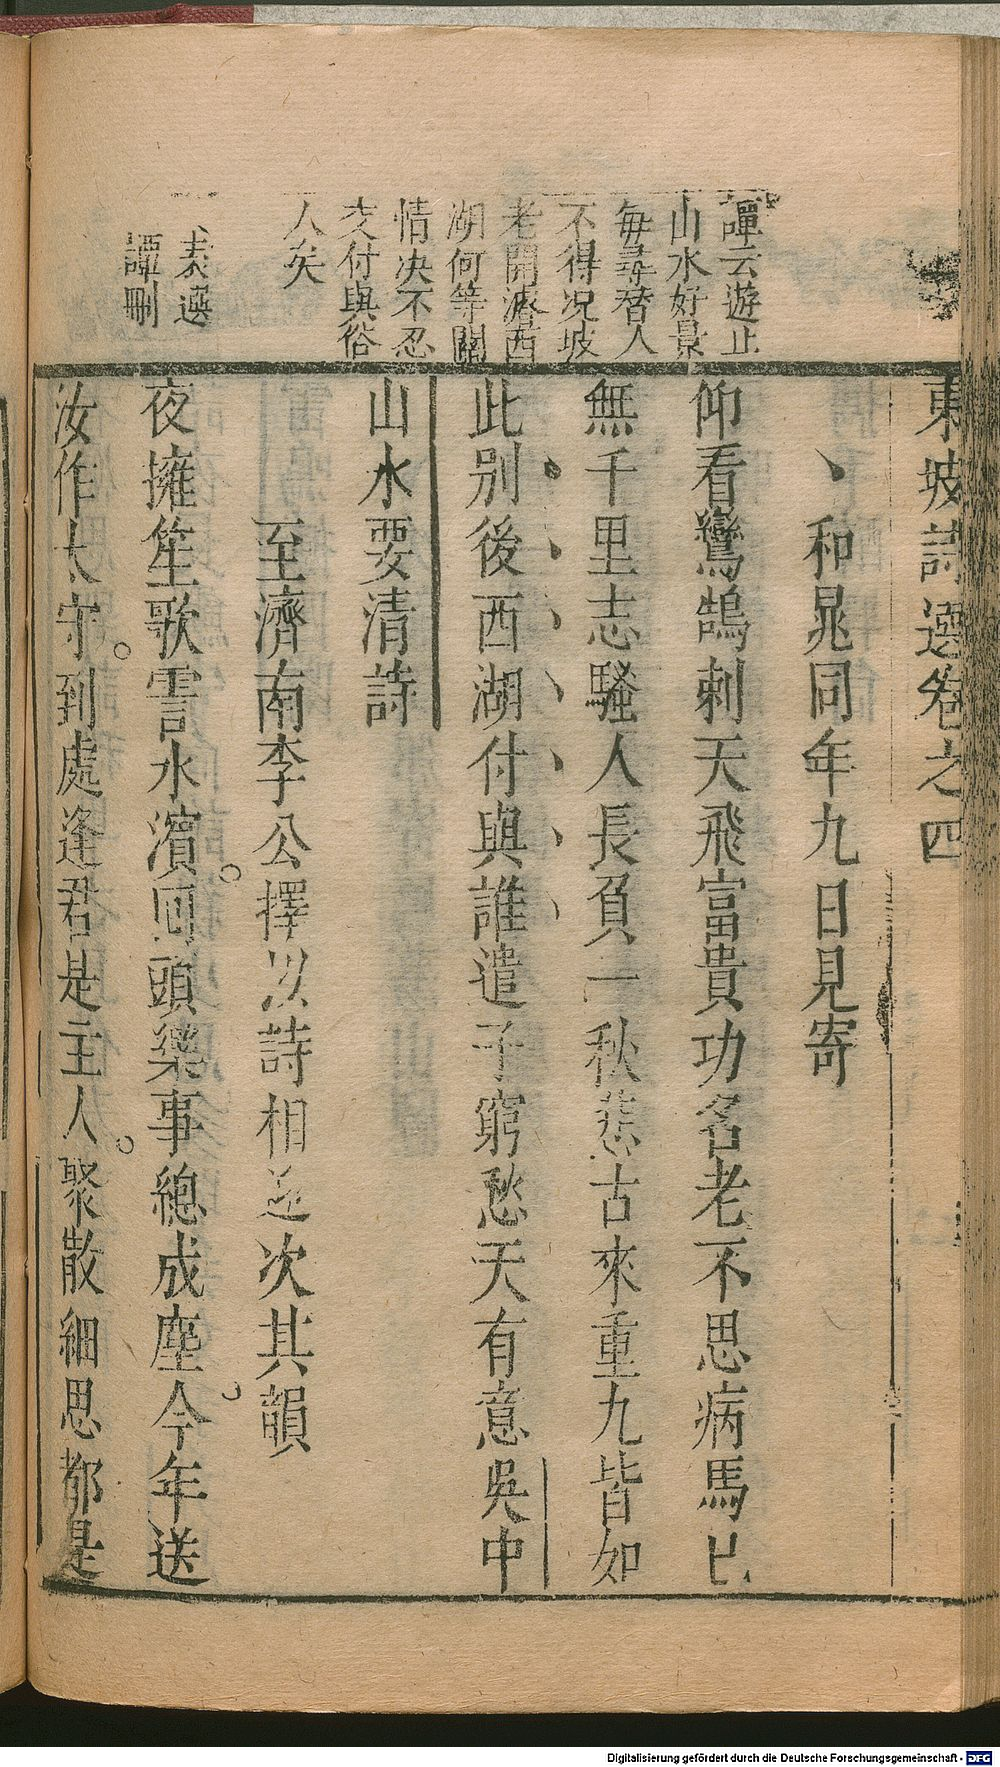 東坡詩選卷之四
和晁同年九日見寄
仰看鸞鵠刺天飛富貴功名老不思病馬已
無千里志騷人長負一秋悲古來重九皆如
此別後西湖付與誰遣子窮愁天有意吳中
山水要清詩
至濟南李公擇以詩相迎次其韻
夜擁笙歌霅水濱囘頭樂事總成塵今年送
汝作太守到處逢君是主人聚散細思都是
譚云遊止
山水好景
每尋替人
不得況坡
老開濬西
湖何等關
情決不忍
交付與俗
人矣
袁選
譚刪
Digitalisierung gefördert durch die Deutsche Forschungsgemeinschaft - DFG